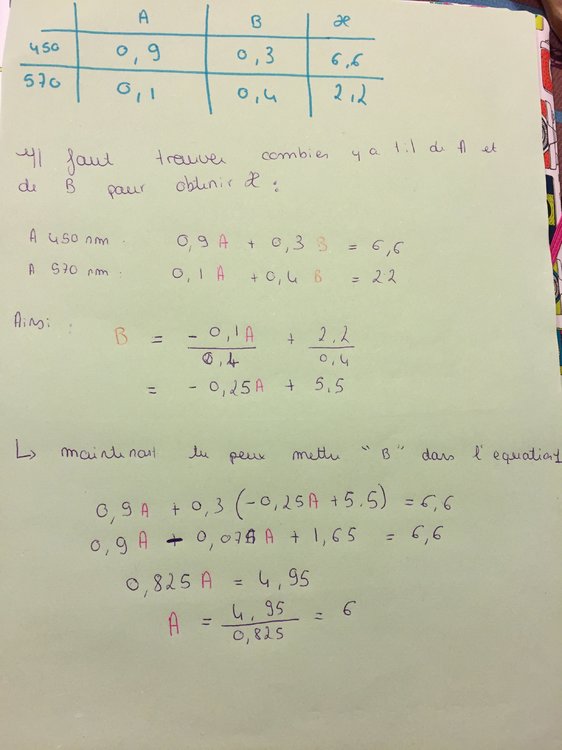 A B x
450 0,9 0,3 6,6
570 0,1 0,4 2,2
Il faut trouver combien y a t'il de A et
de B pour obtenir x :
A 450 nm : 0,9 A + 0,3 B = 6,6
A 570 nm : 0,1 A + 0,4 B = 22
Ainsi :
B = - 0,1A / 0,4 + 2,2 / 0,4
= - 0,25A + 5,5
↳ maintenant tu peux mettre "B" dans l'equation1
0,9A + 0,3 (-0,25A + 5.5) = 6,6
0,9A - 0,075A + 1,65 = 6,6
0,825 A = 4,95
A = 4,95 / 0,825 = 6